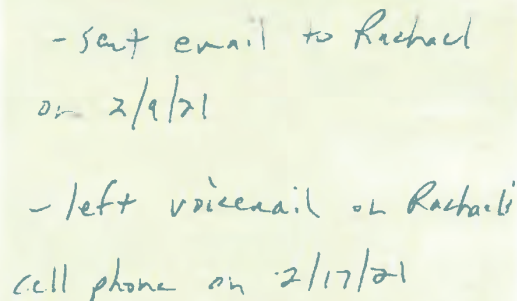 - sent email to Rachael
on 2/9/21
- left voicemail on Rachael's
cell phone on 2/17/21